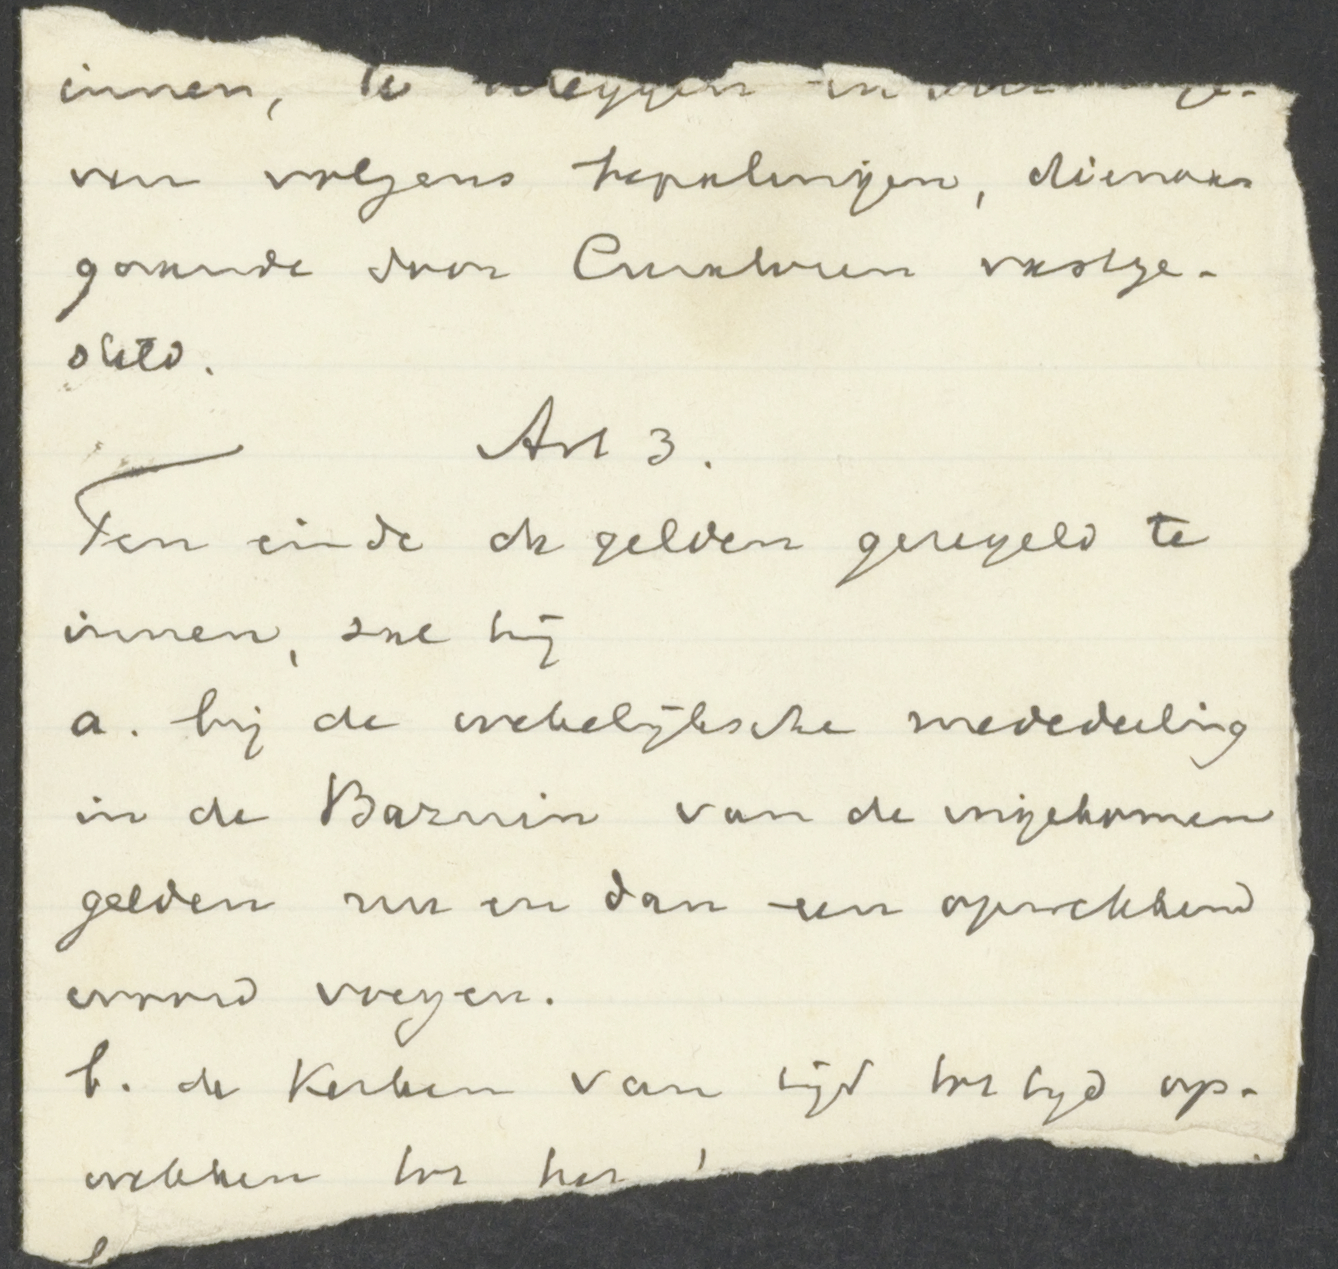 innen, te beleggen en uit te ge-
ven volgens bepalingen, dienaan
gaande door Curatoren vastge-
steld.
Art 3.
Ten einde de gelden geregeld te
innen, zal hij
a. bij de wekelijksche mededeeling
in de Bazuin van de ingekomen
gelden nu en dan een opwekkend
woord voegen.
b. de Kerken van tijd tot tijd op-
wekken tot het